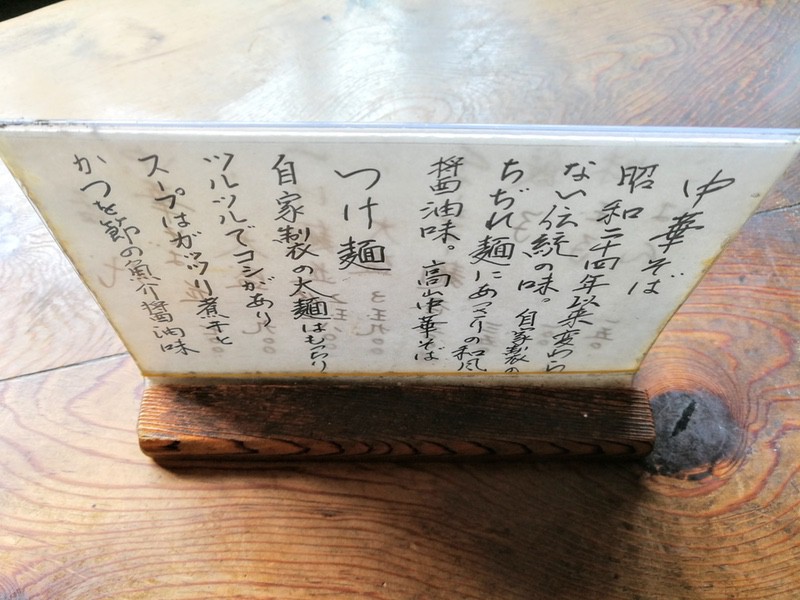 中華そば
昭和二十四年以来変わら
ない伝統の味。自家製の
ちぢれ麺にあっさりの和風
醤油味。高山中華そば
つけ麺
自家製の太麺はもっちり
ツルツルでコシがあり
スープはガッツリ煮干と
かつを節の魚介醤油味